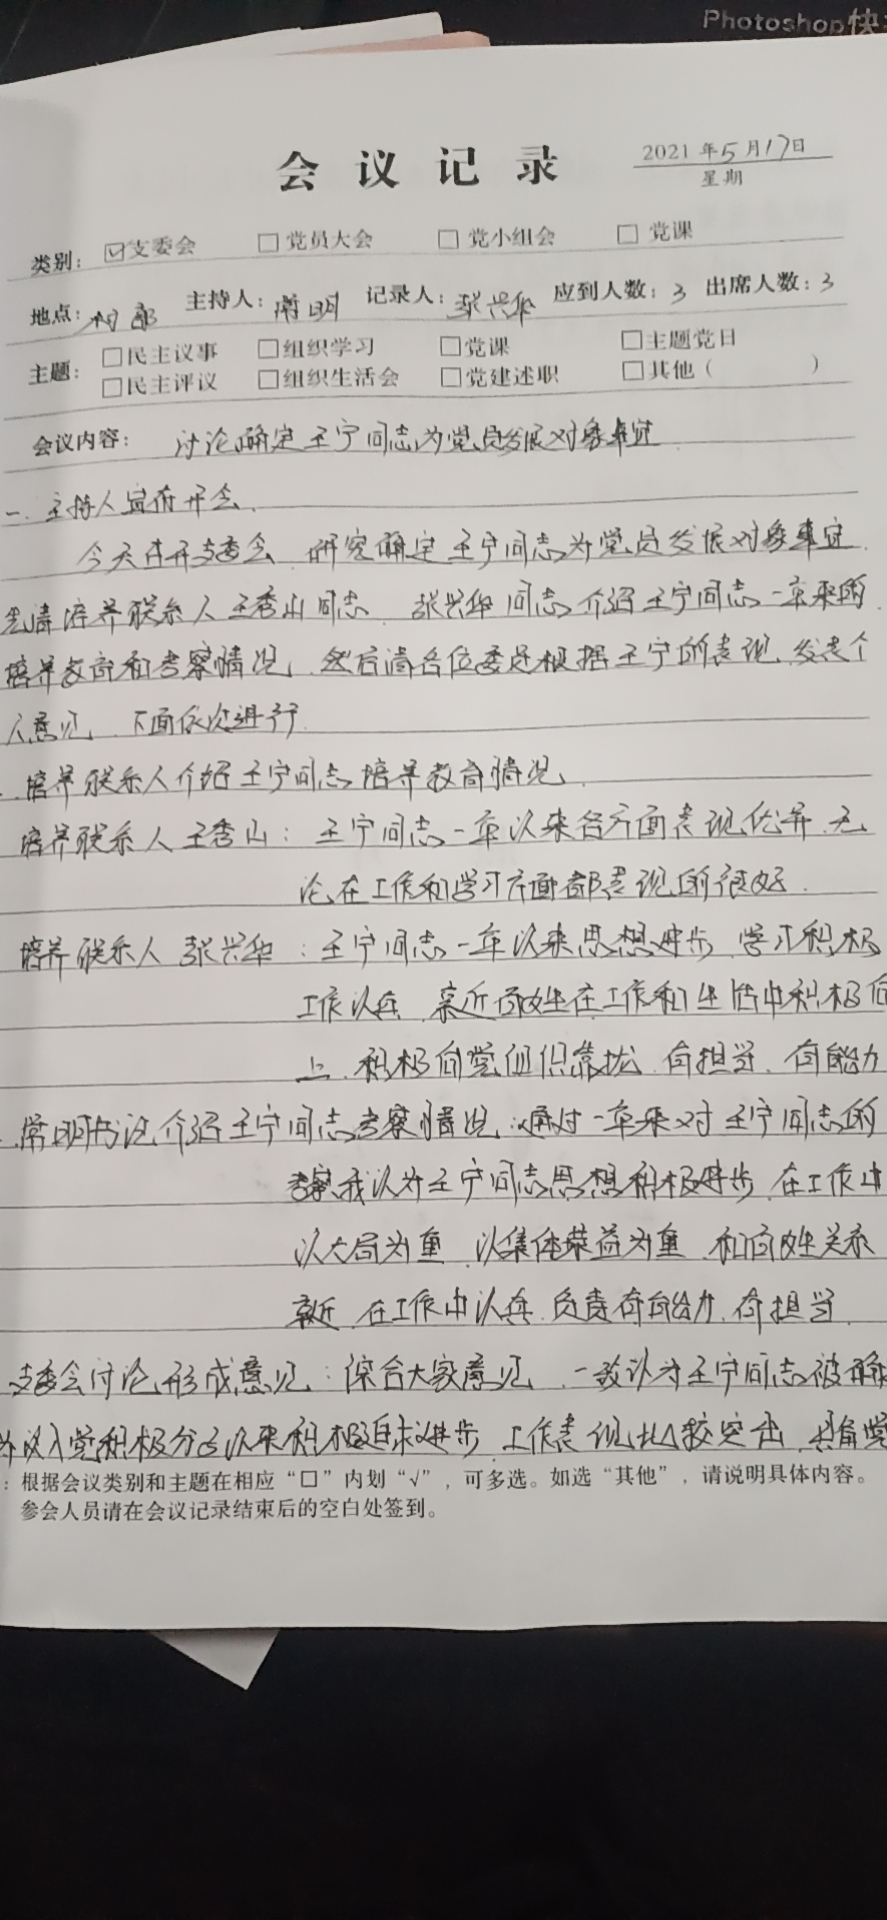 Photoshop快
会议记录
2021年5月17日
星期
类别：☑支委会 □党员大会 □党小组会 □党课
地点：村部 主持人：常明 记录人：张兴华 应到人数：3 出席人数：3
主题：□民主议事 □组织学习 □党课 □主题党日
□民主评议 □组织生活会 □党建述职 □其他（ ）
会议内容：讨论确定王宁同志为党员发展对象事宜
一、主持人宣布开会.
今天召开支委会，研究确定王宁同志为党员发展对象事宜.
先请培养联系人王秀山同志、张兴华同志介绍王宁同志一年来的
培养教育和考察情况，然后请各位委员根据王宁的表现，发表个
人意见，下面依次进行
培养联系人介绍王宁同志培养教育情况.
培养联系人王秀山：王宁同志一年以来各方面表现优异，无
论在工作和学习方面都表现的很好.
培养联系人张兴华：王宁同志一年以来思想进步，学习积极
工作认真，亲近百姓在工作和生活中积极向
上，积极向党组织靠拢，有担当，有能力
常明书记介绍王宁同志考察情况：通过一年来对王宁同志的
考察我认为王宁同志思想积极进步，在工作中
以大局为重，以集体荣益为重，和百姓关系
亲近，在工作中认真，负责有能力，有担当.
支委会讨论形成意见：综合大家意见，一致认为王宁同志被确
入党积极分子以来积极追求进步，工作表现比较突出，具备党
：根据会议类别和主题在相应“□”内划“√”，可多选。如选“其他”，请说明具体内容。
参会人员请在会议记录结束后的空白处签到。